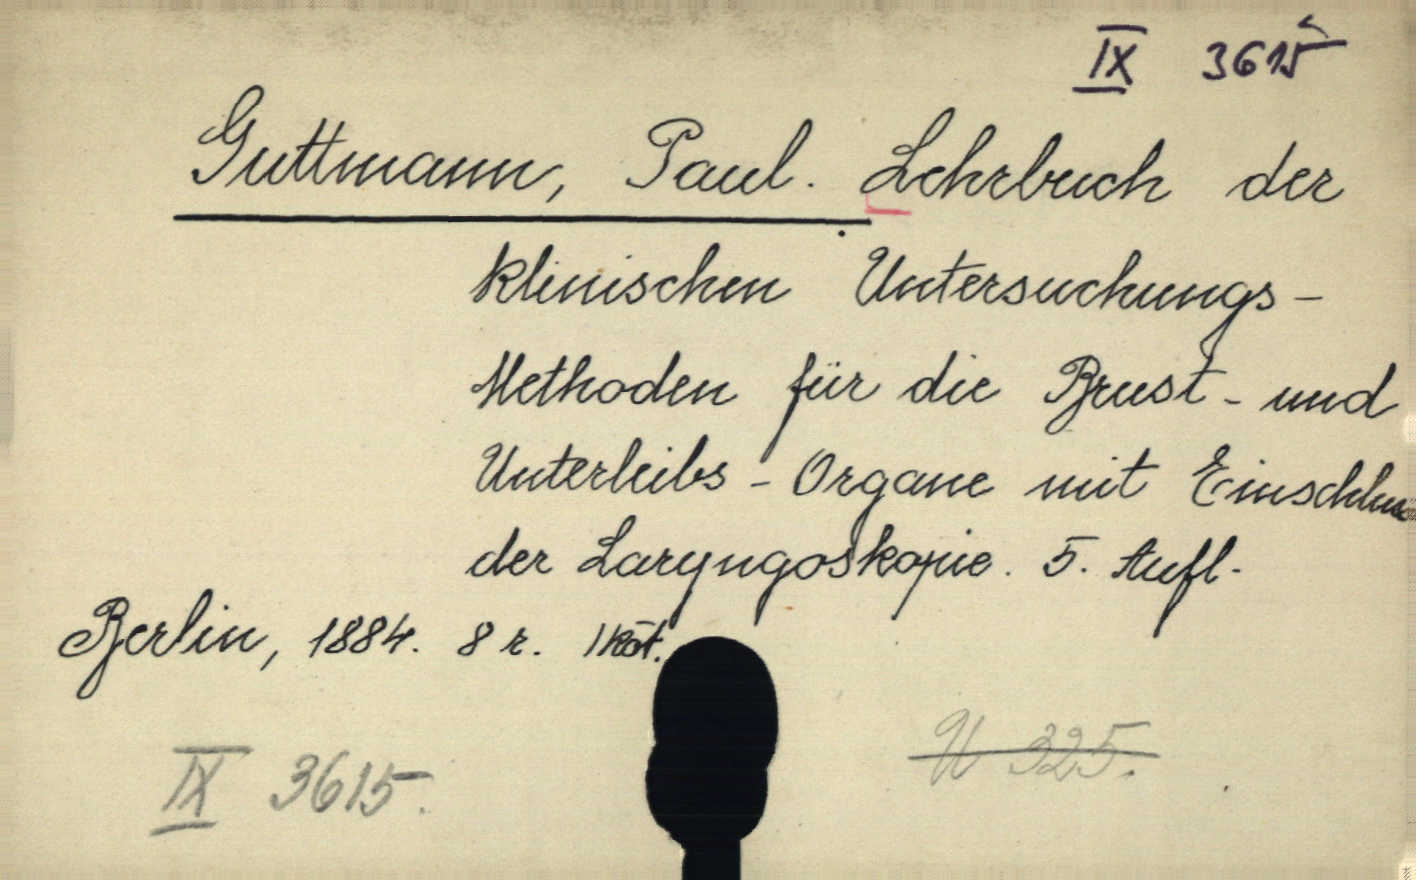 IX 3615
Guttmann, Paul. Lehrbuch der
klinischen Untersuchungs-
Methoden für die Brust- und
Unterleibs-Organe mit Einschluss
der Laryngoskopie. 5. Aufl.
Berlin, 1884. 8 r. 1 köt.
U 325.
IX 3615.